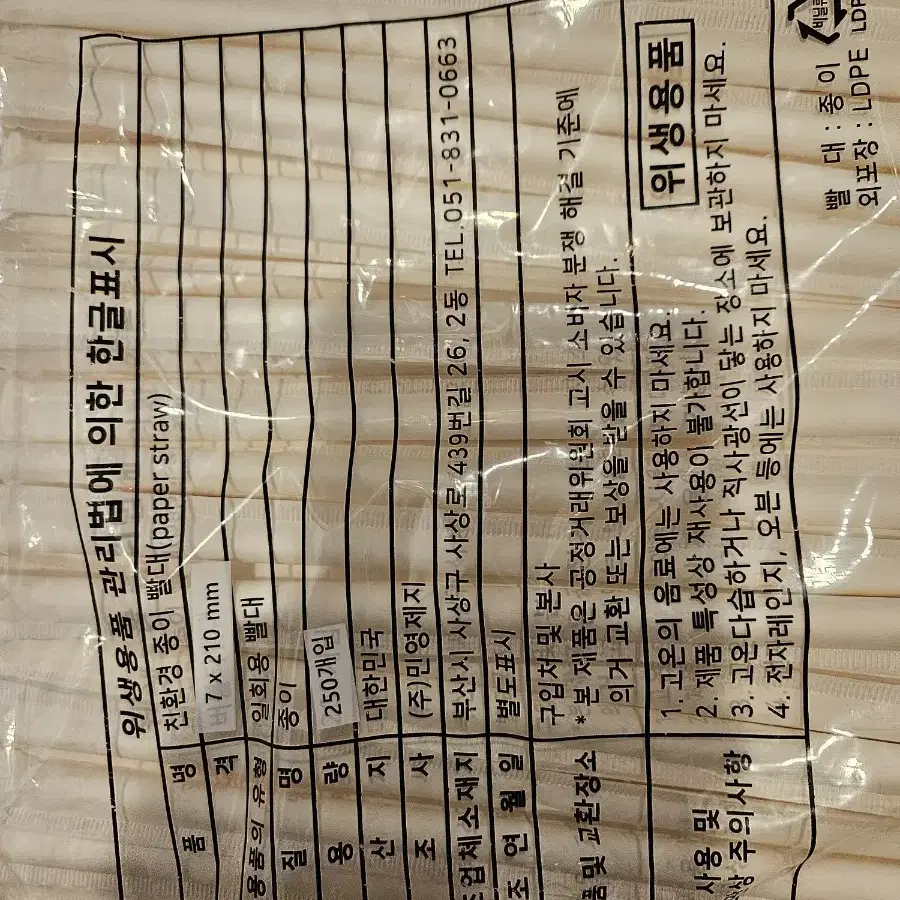 위생용품 관리법에 의한 한글표시
품 명 친환경 종이 빨대(paper straw)
격 7 x 210 mm
용품의 유형 일회용 빨대
질 명 종이
용 량 250개입
산 지 대한민국
조 사 (주)민영제지
업체소재지 부산시 사상구 사상로 439번길 26, 2동 TEL.051-831-0663
조 연 월 일 별도표시
품및 교환장소 구입처 및 본사
*본 제품은 공정거래위원회 고시 소비자 분쟁 해결 기준에
의거 교환 또는 보상을받을 수 있습니다.
사용 및
상 주의사항
1. 고온의 음료에는 사용하지 마세요.
2. 제품 특성상 재사용이 불가합니다.
3. 고온다습하거나 직사광선이 닿는 장소에 보관하지 마세요.
4. 전자레인지, 오븐 등에는 사용하지 마세요.
위생용품
비닐류
LDP
빨 대 : 종이
외포장 : LDPE